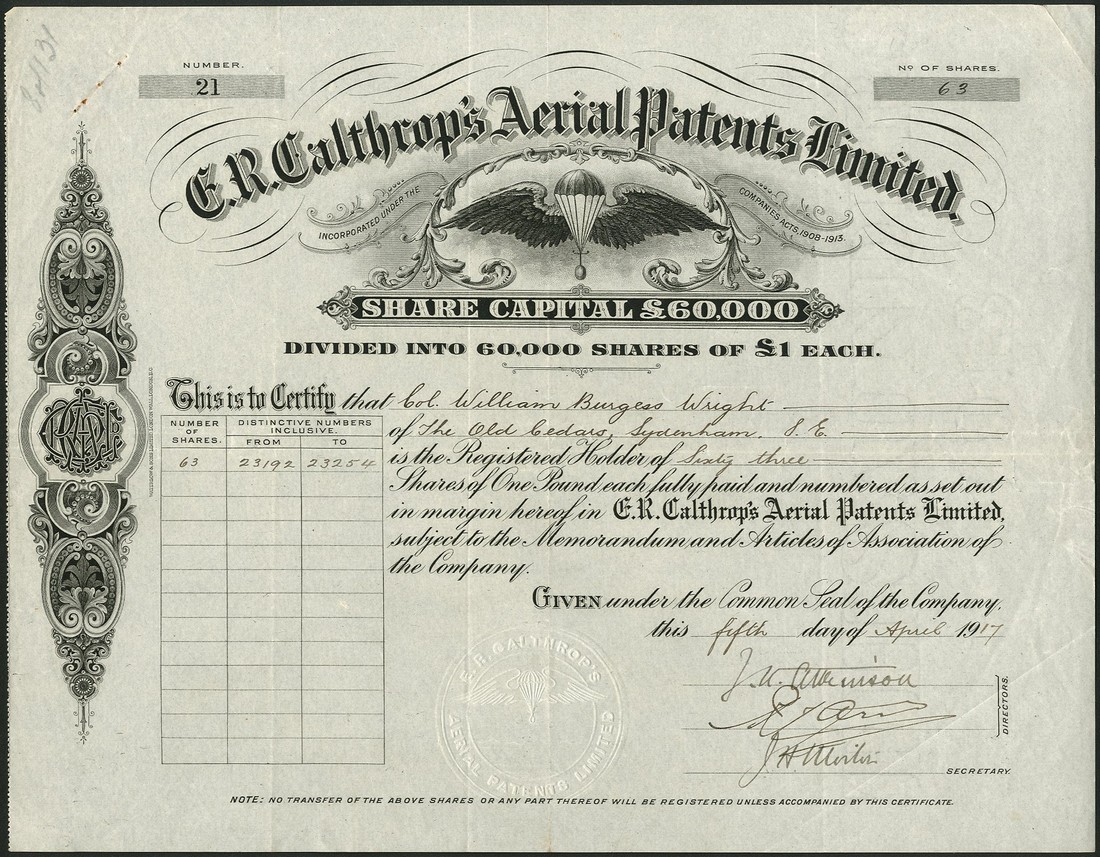 NUMBER.
21
No OF SHARES.
63
E.R. Calthrop's Aerial Patents Limited.
INCORPORATED UNDER THE
COMPANIES ACTS, 1908-1913.
SHARE CAPITAL £60,000
DIVIDED INTO 60,000 SHARES OF £1 EACH.
This is to Certify that Col. William Burgess Wright
of The Old Cedars, Sydenham, S.E.
is the Registered Holder of Sixty three
Shares of One Pound each fully paid and numbered as set out
in margin hereof in E.R. Calthrop's Aerial Patents Limited,
subject to the Memorandum and Articles of Association of
the Company.
NUMBER OF SHARES.
DISTINCTIVE NUMBERS INCLUSIVE.
FROM TO
63 23192 23254
GIVEN under the Common Seal of the Company,
this fifth day of April 1917
DIRECTORS.
SECRETARY.
E.R. CALTHROP'S
AERIAL PATENTS LIMITED
NOTE: NO TRANSFER OF THE ABOVE SHARES OR ANY PART THEREOF WILL BE REGISTERED UNLESS ACCOMPANIED BY THIS CERTIFICATE.